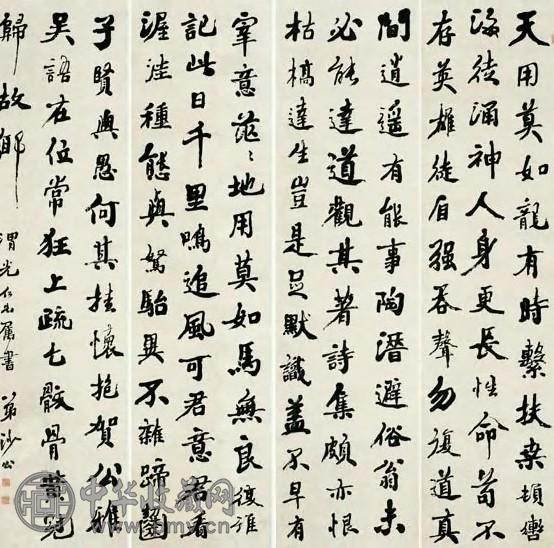 天用莫如龍有時繫扶桑頓轡
海徒涌神人身更長性命苟不
存英雄徒自強吞聲勿復道真
間逍遥有能事陶潛避俗翁未
必能達道觀其著詩集頗亦恨
枯槁達生豈是足默識蓋不早有
宰意茫〻地用莫如馬無良復誰
記此日千里鳴追風可君意君看
渥洼種態與駑駘異不雜蹄齧
子賢與愚何其挂懷抱賀公雅
吳語在位常狂上疏乞骸骨黃冠
歸故鄉
渭光仁兄屬書
中华收藏网